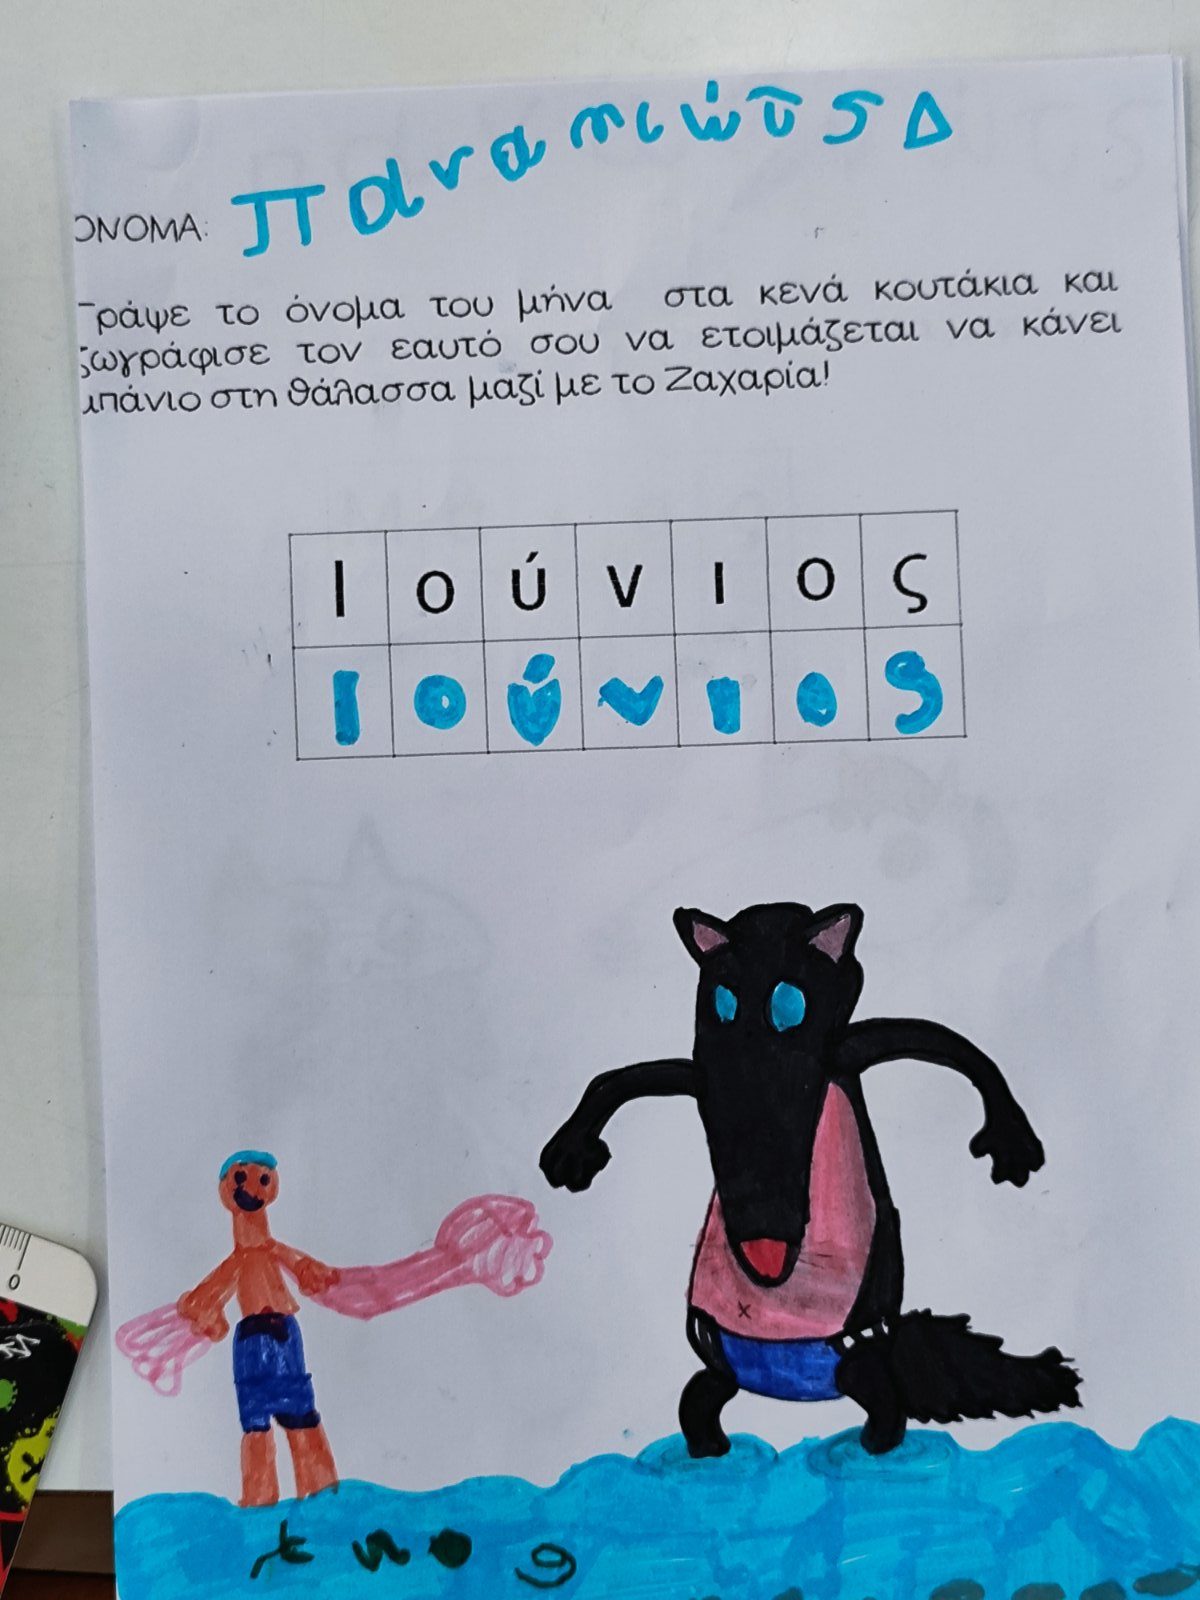 ΟΝΟΜΑ: Παναγιώτης Δ
Γράψε το όνομα του μήνα στα κενά κουτάκια και
ζωγράφισε τον εαυτό σου να ετοιμάζεται να κάνει
μπάνιο στη θάλασσα μαζί με το Ζαχαρία!
Ι ο ύ ν ι ο ς
Ι ο ύ ν ι ο ς
0